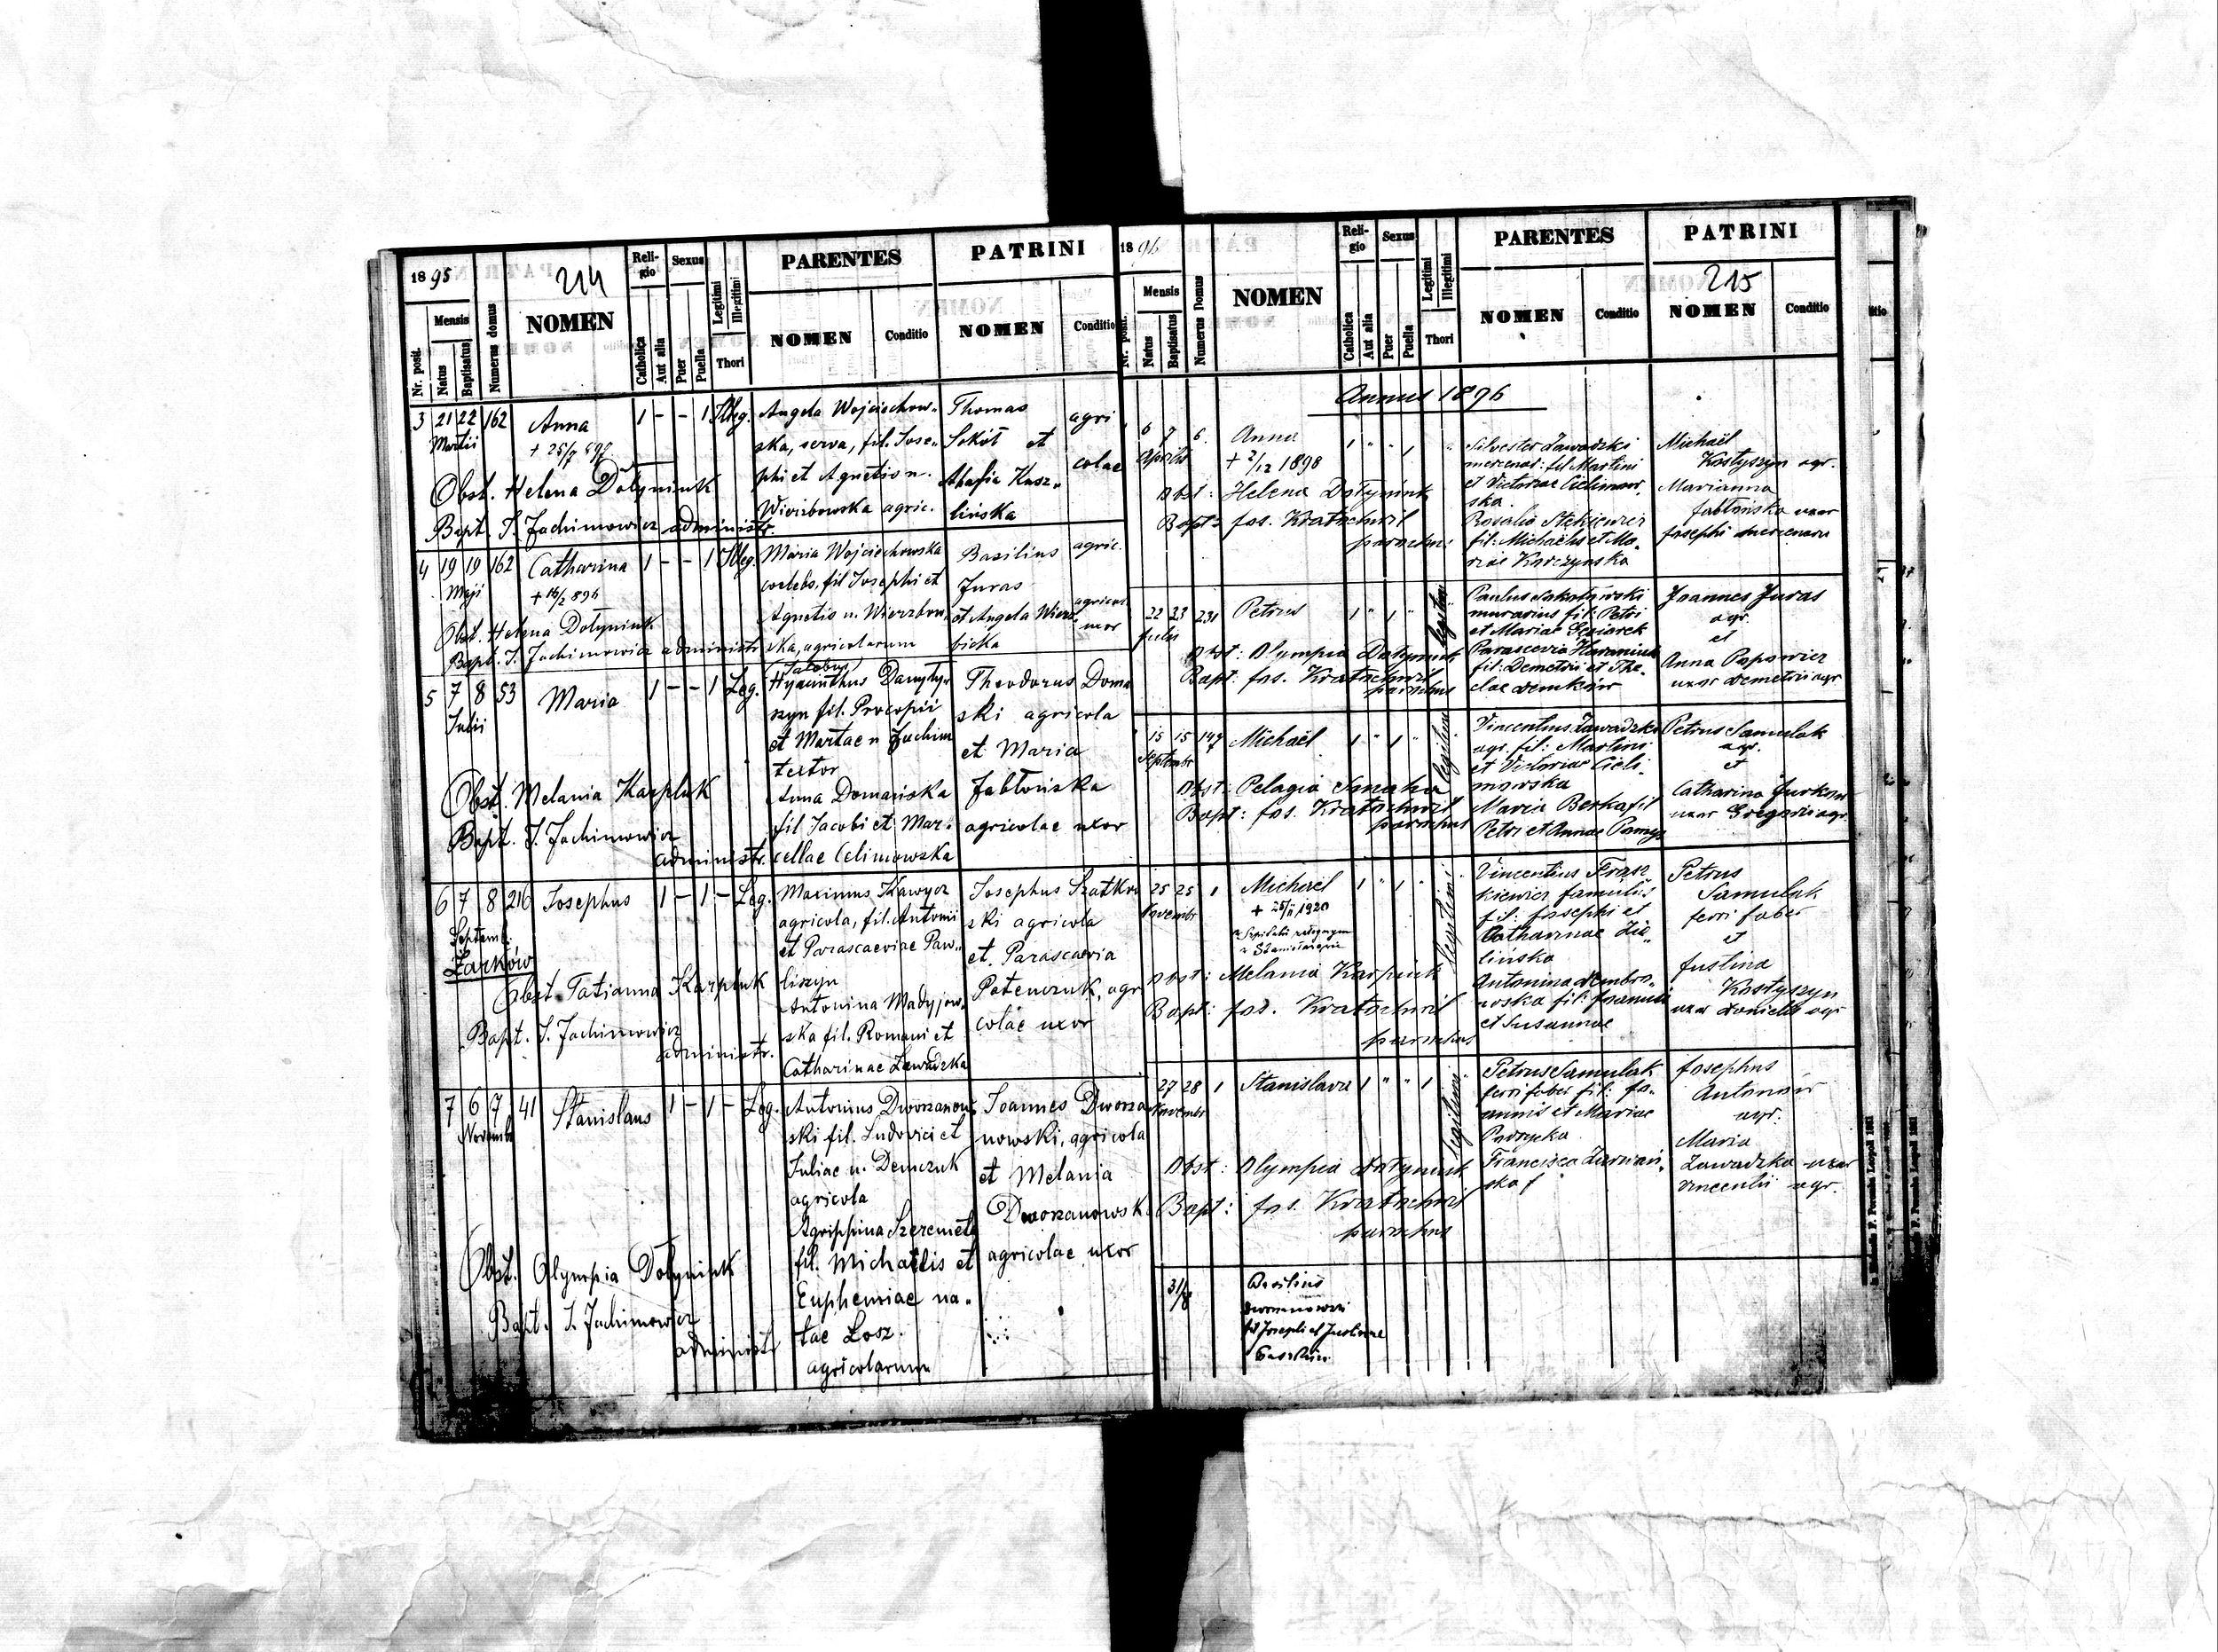 1895
214
Nr. posit.
Mensis
Natus
Baptisatus
Numerus domus
NOMEN
Reli-
gio
Catholica
Aut alia
Sexus
Puer
Puella
Legitimi
Illegitimi
Thori
PARENTES
NOMEN
Conditio
PATRINI
NOMEN
Conditio
3 21 22 162 Anna 1 - - 1 Illeg.
Martii
Angela Wojciechow-
ska, serva, fil. Jose-
phi et Agnetis n.
Wierzbowska agric.
Thomas
Sokół et
Kusz-
lińska
agri
colae
Obst. Helena Dołyniuk
Bapt. J. Jachimowicz administr.
4 19 19 162 Catharina 1 - - 1 Illeg.
Maji
+ 16/2 896
Maria Wojciechowska
coelebs, fil Josephi et
Agnetis n. Wierzbow-
ska, agricolarum
Basilius
Juras
et Angela Wierz-
bicka
agric.
agricol.
uxor
Obst. Helena Dołyniuk
Bapt. J. Jachimowicz administr
5 7 8 53 Maria 1 - - 1 Leg.
Julii
Jacobus
Hyacinthus
szyn fil. Procopii
et Martae n Jachim
textor
Anna Domańska
fil Jacobi et Mar-
cellae Celimowska
Theodorus Doma
ski agricola
et Maria
Jabłońska
agricolae uxor
Obst. Melania Karpluk
Bapt. J. Jachimowicz
administr.
6 7 8 216 Josephus 1 - 1 - Leg.
Septemb.
Żarków
Maximus Kawycz
agricola, fil. Antonii
et Parascaeviae Paw-
liszyn
Antonina Madyjew-
ska fil. Romani et
Catharinae Zawadzka
Josephus Szatkow
ski agricola
et Parascaevia
Potenczuk, agri
colae uxor
Obst. Tatianna Karpluk
Bapt. J. Jachimowicz
administr.
7 6 7 41 Stanislaus 1 - 1 - Leg.
Novemb
Antonius Dworzanow-
ski fil. Ludovici et
Juliae n. Demczuk
agricola
Agrippina Szeremeta
fil. Michaelis et
Euphemiae na-
tae Łosz
agricolarum
Joannes Dworza
nowski, agricola
et Melania
Dworzanowsk
agricolae uxor
Obst. Olympia Dołyniuk
Bapt. J. Jachimowicz
administr
1896
215
Nr. posit.
Mensis
Natus
Baptisatus
Numerus Domus
NOMEN
Reli-
gio
Catholica
Aut alia
Sexus
Puer
Puella
Legitimi
Illegitimi
Thori
PARENTES
NOMEN
Conditio
PATRINI
NOMEN
Conditio
Annus 1896
6 7 6. Anna 1 " " 1 "
Aprilis
+ 2/12 1898
Silvester Zawadzki
mercenar: fil Martini
et Victoriae Celimow-
ska
Rosalia Stekiewicz
fil: Michaelis et Ma-
riae Korczynska
Michaël
Kostyszyn agr.
Marianna
Jabłońska uxor
Josephi mercenarii
Obst: Helena Dołyniuk
Bapt: Jos. Kratochwil
parochus
22 23 231 Petrus 1 " 1 " legitimi
Julii
Paulus
murarius fil: Petri
et Mariae
Parascevia
fil: Demetrii et The-
clae Demków
Joannes Juras
agr.
et
Anna Popowicz
uxor Demetrii agr
Obst: Olympia Dołyniuk
Bapt: Jos. Kratochwil
parochus
15 15 147 Michaël 1 " 1 " legitimi
Septembr
Vincentius Zawadzki
agr. fil: Martini
et Victoriae Celi-
mowska
Maria Berka fil
Petri et Annae
Petrus Samulak
agr.
et
Catharina Jurkow
uxor Gregorii agr.
Obst: Pelagia
Bapt: Jos. Kratochwil
parochus
25 25 1 Michael 1 " 1 " legitimi
Novembr
+ 25/II 1920
Vincentius Frasz-
kiewicz famulus
fil: Josephi et
Catharinae Zie-
lińska
Antonina Dembro-
wska fil: Joannis
et Susannae
Petrus
Samulak
ferri faber
et
Justina
Kostyszyn
uxor Danielis agr
Obst: Melania Karpiuk
Bapt: Jos. Kratochwil
parochus
27 28 1 Stanislava 1 " " 1 legitimi
Novembr
Petrus Samulak
ferri faber fil: Jo-
annis et Mariae
Francisca
ska f
Josephus
Antonów
agr.
Maria
Zawadzka uxor
Vincentii agr.
Obst: Olympia Dołyniuk
Bapt: Jos. Kratochwil
parochus
31/8
Basilius
fil Josephi et Justinae